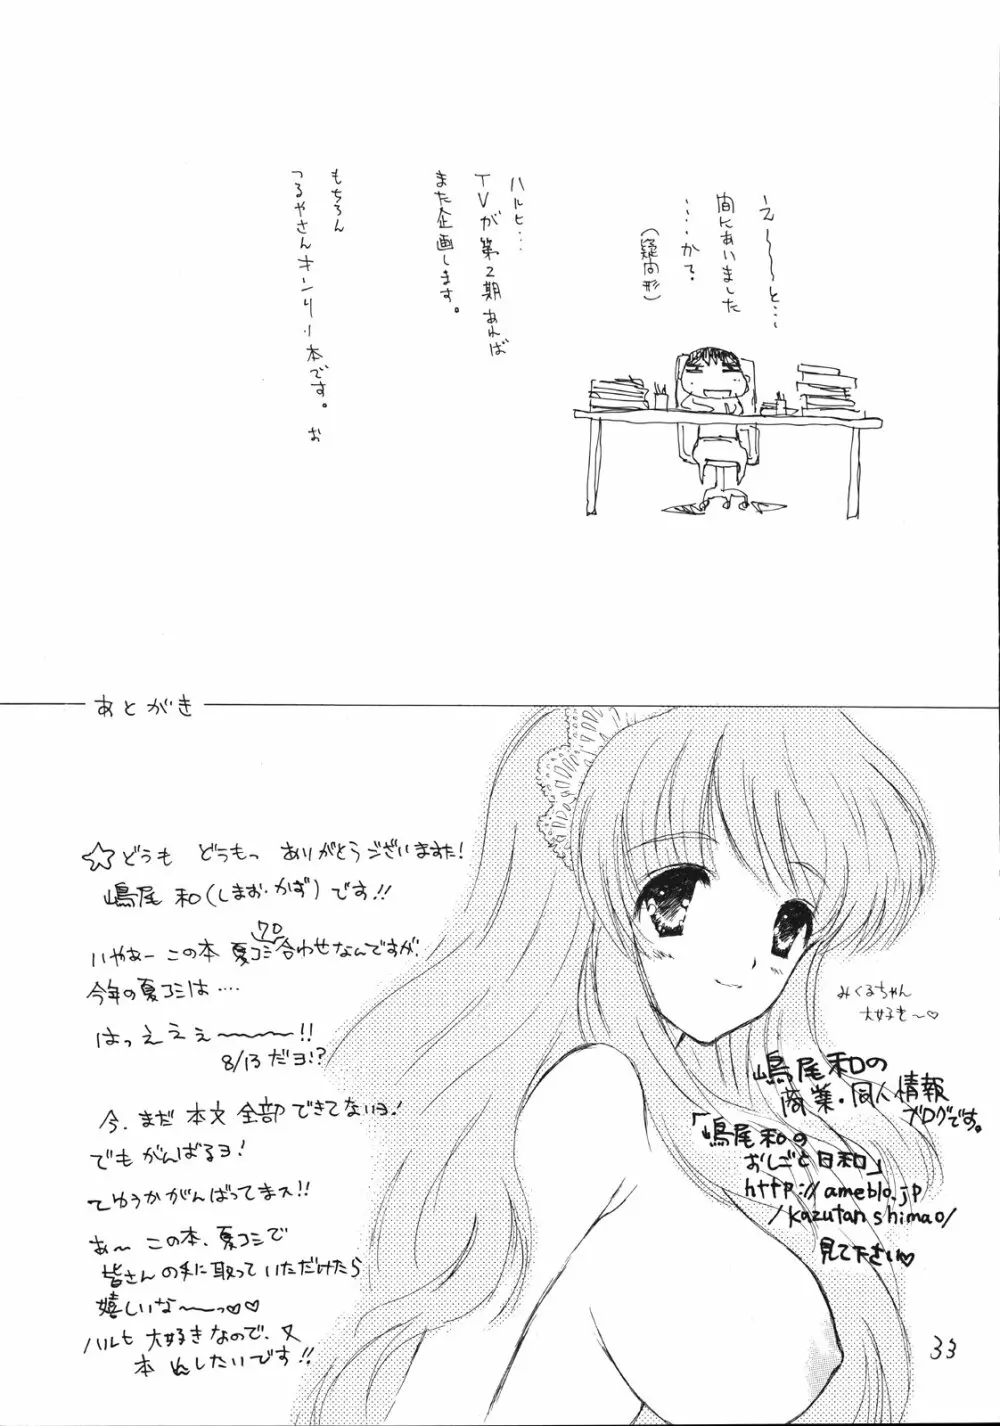 えーーーと…
間にあいました
……か？
（疑問形）
ハルヒ…
TVが第2期あれば
また企画します。
もちろん
つるやさんオンリー本です。 お
あとがき
☆どうも どうもっ ありがとうございますた！
嶋尾 和（しまお・かず）です!!
いやぁー この本 夏コミ70合わせなんですが、
今年の夏コミは‥‥
はっぇぇぇ〜〜〜!!
8/13だヨ!?
今、まだ 本文 全部 できてないヨ！
でもがんばるヨ！
てゆうかがんばってまス!!
あ〜 この本、夏コミで
皆さんの手に取っていただけたら
嬉しいな〜〜っ♡♡
ハルヒ 大好きなので、又
本 したいです!!
みくるちゃん
大好き〜♡
嶋尾和の
商業・同人情報
ブログです。
「嶋尾和の
おしごと日和」
http://ameblo.jp
/kazutanshimao/
見て下さい♡
33